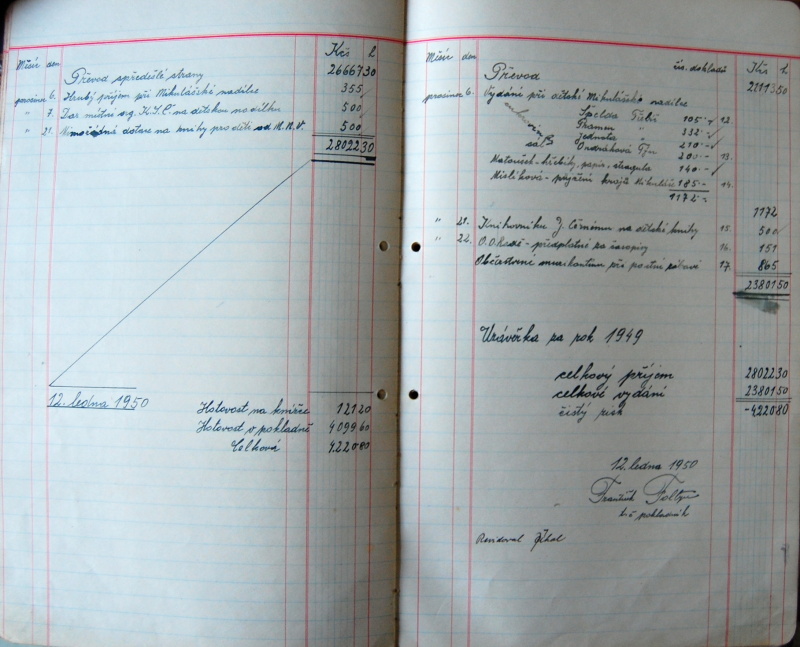 Měsíc den Kčs h
Převod s předešlé strany 26667 30
prosince 6. Hrubý příjem při Mikulášské nadílce 355
" 7. Dar místní org. K.S.Č. na dětskou nadílku 500
" 21. dotace na knihy pro děti od M.N.V. 500
28022 30
12. ledna 1950
Hotovost na knížce 121 20
Hotovost v pokladně 4099 60
Celková 4220 80
Měsíc den čís. dokladů Kčs h
Převod 21113 50
prosince 6. Vydání při dětské Mikulášské nadílce
Špelda 105 - 12.
Pramen " 332 -
Jednota " 210 -
sál Ondráková 200 - 13.
papír, 140 -
Mikuláše 185 - 14.
1172 -
1172
" 21. Knihovníku J. Černému na dětské knihy 15. 500
" 22. předplatné za časopisy 16. 151
Občerstvení muzikantům při zábavě 17. 865
23801 50
Uzávěrka za rok 1949
celkový příjem 28022 30
celkové vydání 23801 50
čistý zisk - 4220 80
12. ledna 1950
František Foltýn
t.č. pokladník
Revidoval